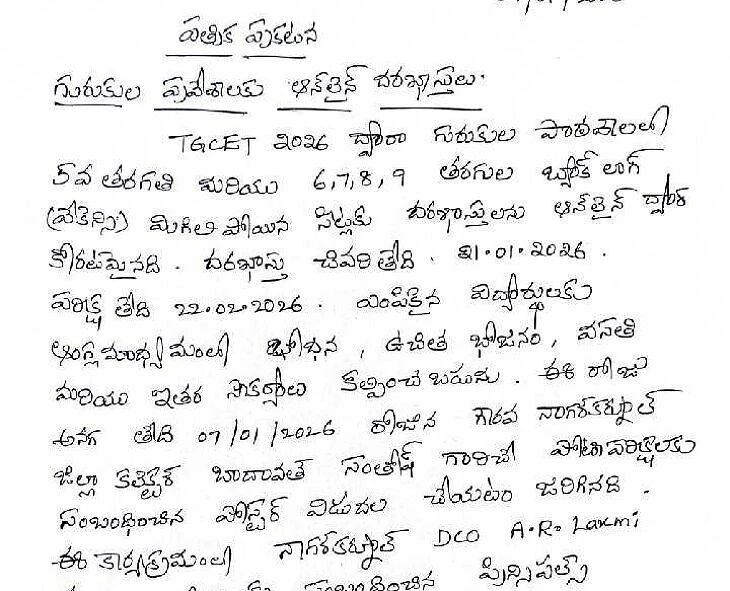 పత్రిక ప్రకటన
గురుకుల ప్రవేశాలకు ఆన్‌లైన్ దరఖాస్తులు.
TGCET 2026 ద్వారా గురుకుల పాఠశాలలో
5వ తరగతి మరియు 6,7,8,9 తరగుల బ్యాక్ లాగ్
(వేకెన్సి) మిగిలి పోయిన సీట్లకు దరఖాస్తులను ఆన్‌లైన్ ద్వారా
కోరటమైనది. దరఖాస్తు చివరి తేది. 21.01.2026.
పరీక్ష తేది 22.02.2026. ఎంపికైన విద్యార్థులకు
ఆంగ్ల మాధ్యమంలో బోధన, ఉచిత భోజనం, వసతి
మరియు ఇతర సౌకర్యాలు కల్పించే బడును. ఈ రోజు
అనగ తేది 07/01/2026 రోజున గౌరవ నాగర్‌కర్నూల్
జిల్లా కలెక్టర్ బాదావత్ సంతోష్ గారిచే పోటాపరీక్షలకు
సంబంధించిన పోస్టర్ విడుదల చేయటం జరిగినది.
ఈ కార్యక్రమంలో నాగర్‌కర్నూల్ DCO A.R. Laxmi
సంబంధించిన ప్రిన్సిపల్స్